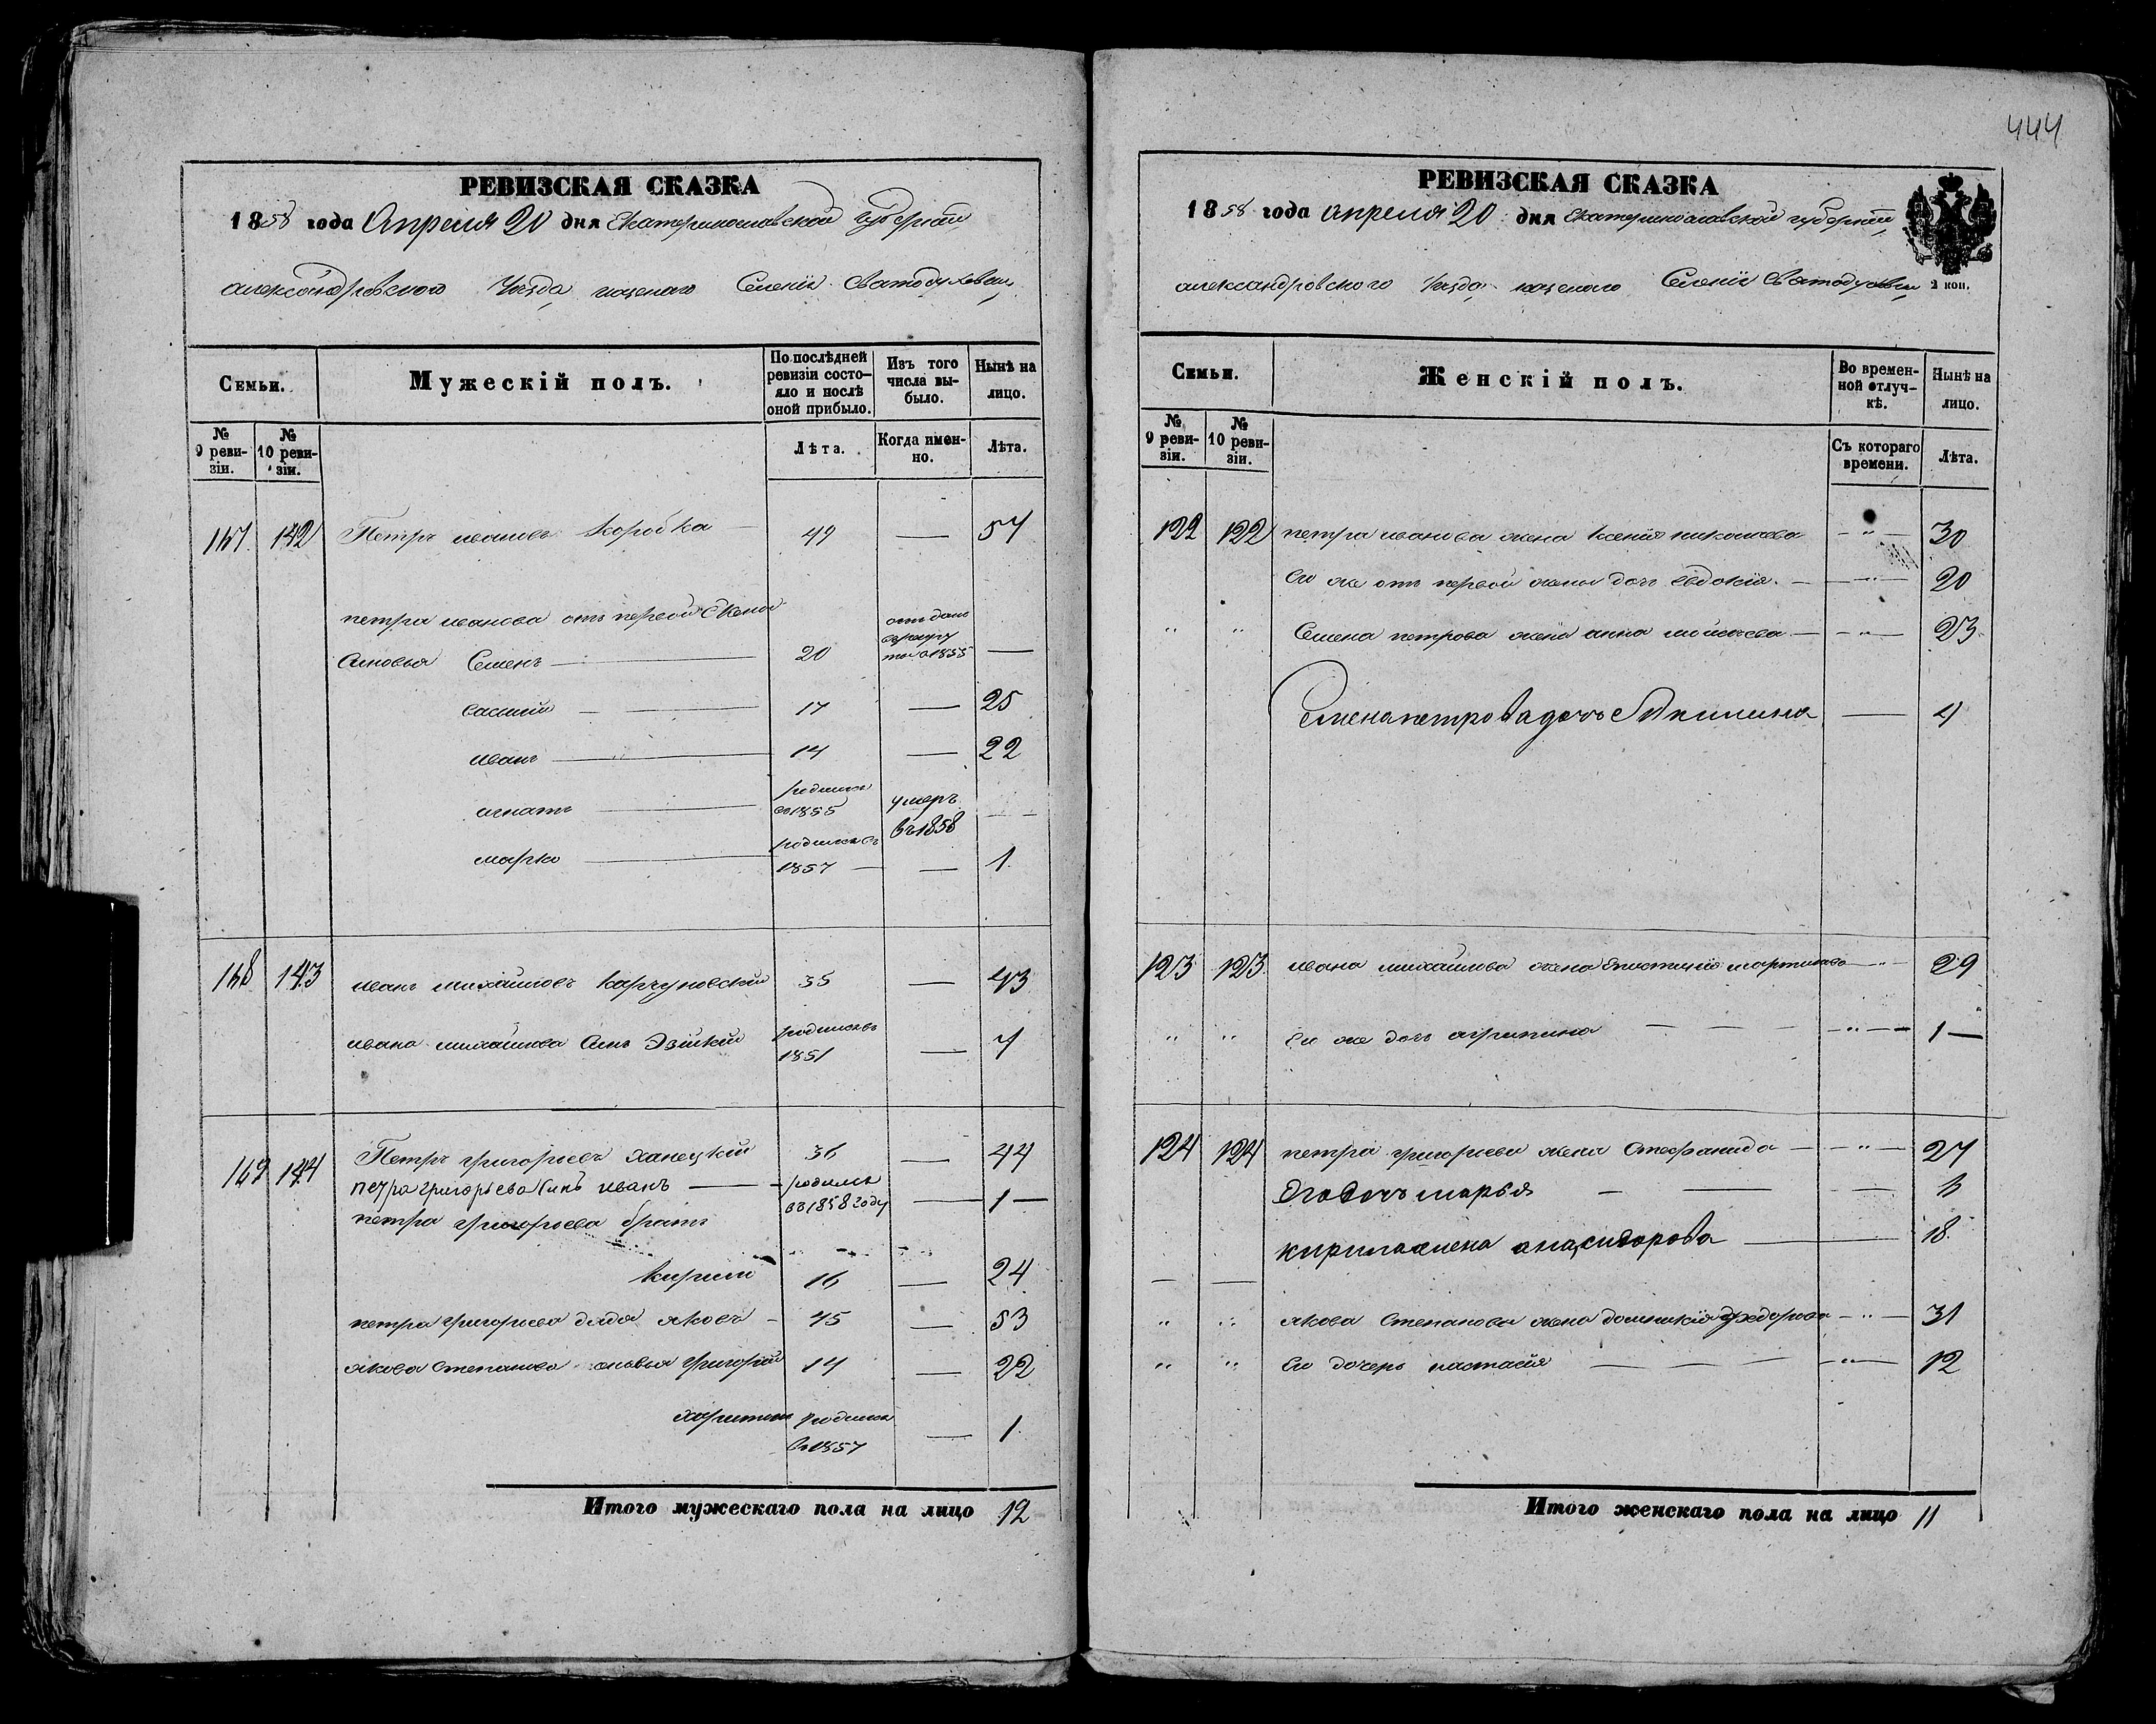 444
РЕВИЗСКАЯ СКАЗКА
1858 года Апреля 20 дня Екатеринославской губернiи
александровского Уезда казеного Селенiя Святодуховки
Семьи.
Мужескiй полъ.
По послѣдней ревизiи состояло и послѣ оной прибыло.
Изъ того числа выбыло.
Нынѣ на лицо.
№ 9 ревизiи.
№ 10 ревизiи.
Лѣта.
Когда именно.
Лѣта.
142 Петръ ивановъ Коробка 49 — 57
петра иванова отъ первой Жены
Сыновья Семенъ — 20 отданъ в 1855 —
василiй — 17 — 25
иванъ — 14 — 22
игнатъ — родился в 1855 умеръ въ 1858 —
марко — родился въ 1857 — — 1
168 143 иванъ михайловъ 35 — 43
ивана михайлова Сынъ родился въ 1851 — 7
169 144 Петръ григорьевъ Ханецкiй 36 — 44
петра григорьева Сынъ иванъ — родился въ 1858 году — 1 —
петра григорьева братъ
Кирило 16 — 24
петра григорьева дядя яковъ — 45 — 53
якова степанова сыновья григорiй 14 — 22
харитонъ родился въ 1857 — 1
Итого мужескаго пола на лицо 12
РЕВИЗСКАЯ СКАЗКА
1858 года апреля 20 дня Екатеринославской губернiи
александровского Уезда казеного Селенiя Святодуховки 2 коп.
Семьи.
Женскiй полъ.
Во временной отлучкѣ.
Нынѣ на лицо.
№ 9 ревизiи.
№ 10 ревизiи.
Съ котораго времени.
Лѣта.
122 122 петра иванова жена ксенiя николаева — " — 30
Его же отъ первой жены дочь евдокiя — " — 20
" " Семена петрова жена анна — " — 23
Семена петрова дочь Акилина — 4
123 123 ивана михайлова жена мартинова — " — 29
" " Его же дочь агрипина — — — " — 1 —
124 124 петра григорьева жена Стефанида — — " — 27
Его дочь марья — — —
кирила жена — — 18
— —
" " якова Степанова жена домникiя федорова — " — 31
" " Его дочерь настасiя — — — " — 12
Итого женскаго пола на лицо 11